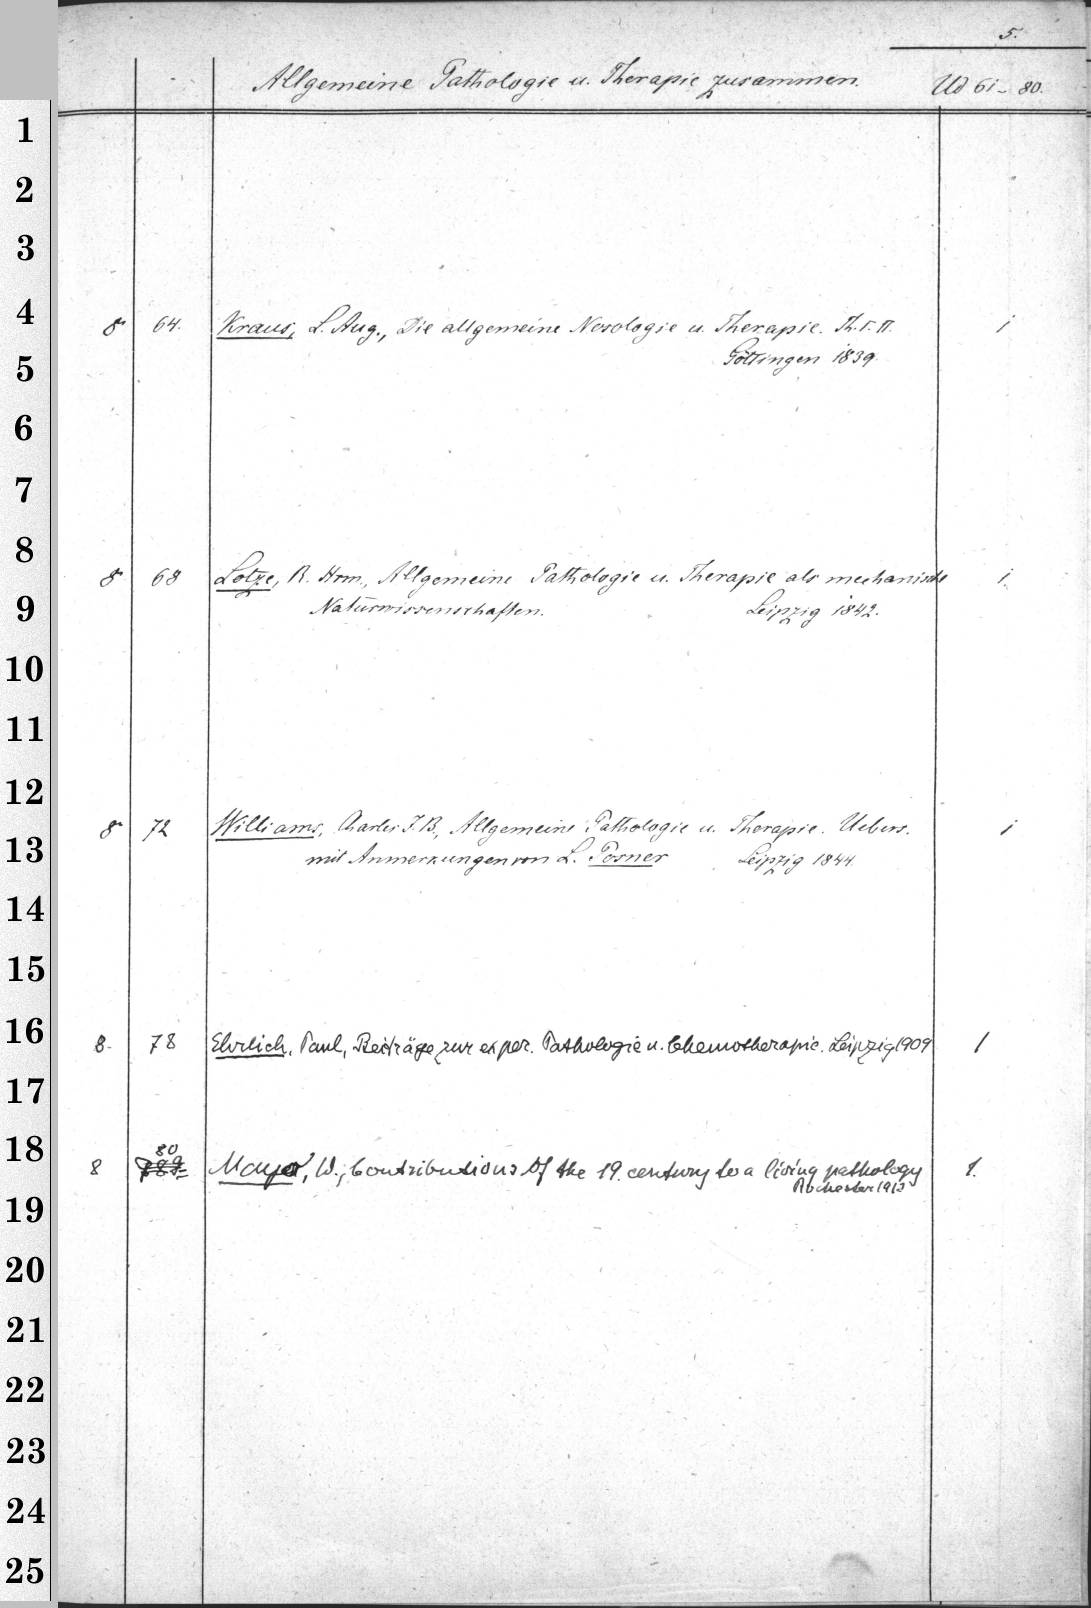 5.
Allgemeine Pathologie u. Therapie zusammen. Ud 61-80.
1
2
3
4
8° 64. Kraus, L. Aug., Die allgemeine Nosologie u. Therapie. Th. I. II. 1
Göttingen 1839.
5
6
7
8
8° 68 Lotze, R. Hrm., Allgemeine Pathologie u. Therapie als mechanische 1.
9
Naturwissenschaften. Leipzig 1842.
10
11
12
8° 72 Williams, Charles J. B., Allgemeine Pathologie u. Therapie. Uebers. 1
13
mit Anmerkungen von L. Posner Leipzig 1844.
14
15
16
8. 78 Ehrlich, Paul, Beiträge zur exper. Pathologie u. Chemotherapie. Leipzig 1909 1
17
18
80
8 Mayo, W., Contributions of the 19. century to a living pathology 1.
Rochester 1913
19
20
21
22
23
24
25